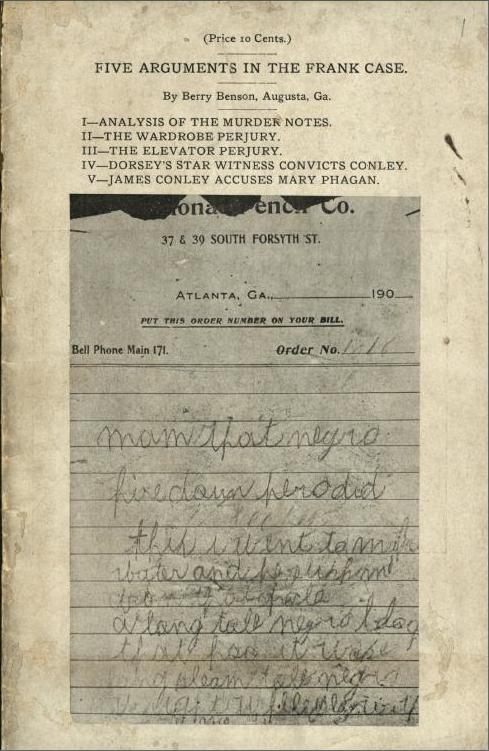 (Price 10 Cents.)
FIVE ARGUMENTS IN THE FRANK CASE.
By Berry Benson, Augusta, Ga.
I—ANALYSIS OF THE MURDER NOTES.
II—THE WARDROBE PERJURY.
III—THE ELEVATOR PERJURY.
IV—DORSEY'S STAR WITNESS CONVICTS CONLEY.
V—JAMES CONLEY ACCUSES MARY PHAGAN.
Co.
37 & 39 SOUTH FORSYTH ST.
ATLANTA, GA., 190
PUT THIS ORDER NUMBER ON YOUR BILL.
Bell Phone Main 171. Order No.
mam that negro
hire doun here did
this i went to make
water and he
a long tall negro black
that hoo it wase
long sleam tall negro